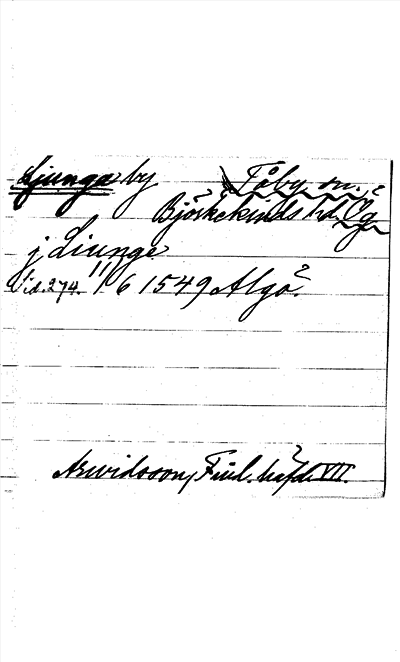 Ljunga by Tåby sn.
Björkekinds hd. Ög
j Liunge
Sid. 274. 11/6 1549 Algö.
Arwidsson, Finl. häfd. VII.